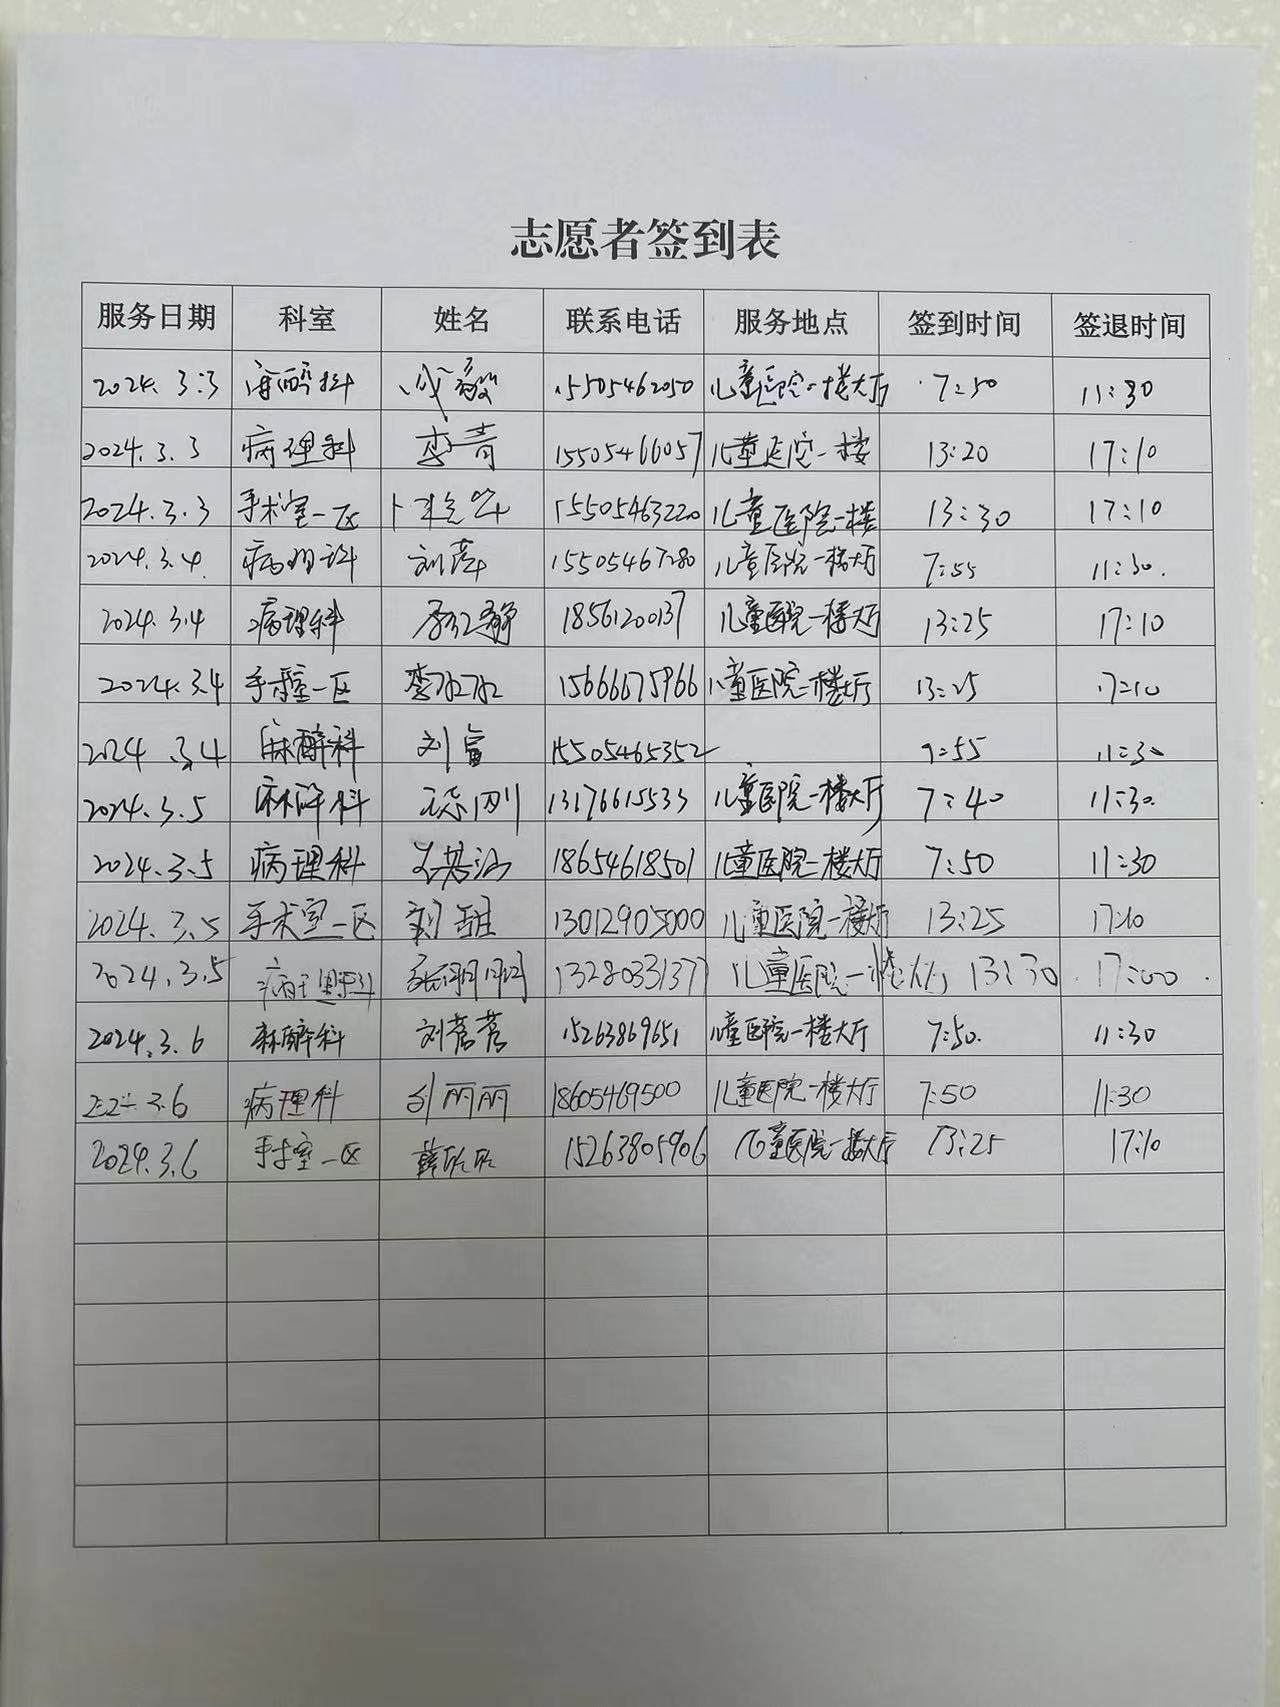 志愿者签到表
服务日期 科室 姓名 联系电话 服务地点 签到时间 签退时间
2024.3.3 麻醉科 成毅 15505462050 儿童医院一楼大厅 7:50 11:30
2024.3.3 病理科 李青 15505466057 儿童医院一楼 13:20 17:10
2024.3.3 手术室一区 15505463220 儿童医院一楼 13:30 17:10
2024.3.4. 病理科 刘萍 15505467280 儿童医院一楼大厅 7:55 11:30.
2024.3.4 病理科 18561200137 儿童医院一楼大厅 13:25 17:10
2024.3.4 手术室一区 15666675966 儿童医院一楼大厅 13:25 17:10
2024.3.4 麻醉科 刘富 15505465352 7:55 11:30
2024.3.5 麻醉科 13176615533 儿童医院一楼大厅 7:40 11:30.
2024.3.5 病理科 18654618501 儿童医院一楼大厅 7:50 11:30
2024.3.5 手术室一区 13012905000 儿童医院一楼大厅 13:25 17:10
2024.3.5 病理科 张明明 13280331377 儿童医院一楼大厅 13:30 17:00
2024.3.6 麻醉科 刘茗茗 15263869651 儿童医院一楼大厅 7:50. 11:30
3.6 病理科 刘丽丽 18605469500 儿童医院一楼大厅 7:50 11:30
2024.3.6 手术室一区 15263805906 儿童医院一楼大厅 13:25 17:10